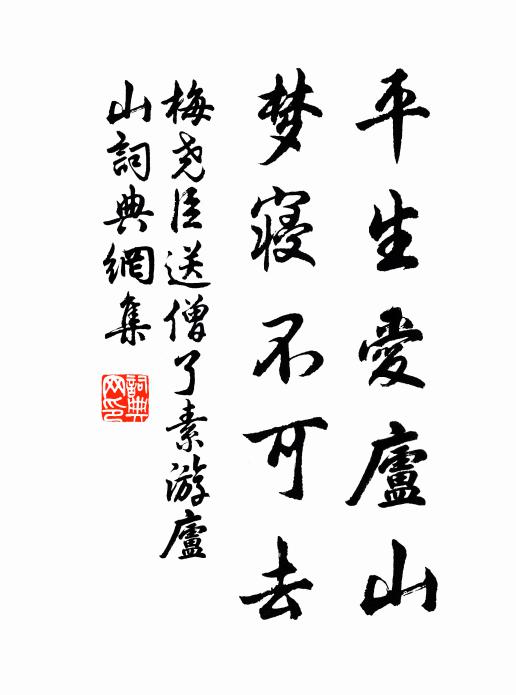 平生愛廬山
梦寝不可去
梅尧臣送僧了素游廬
山詞典網集
詞典网印